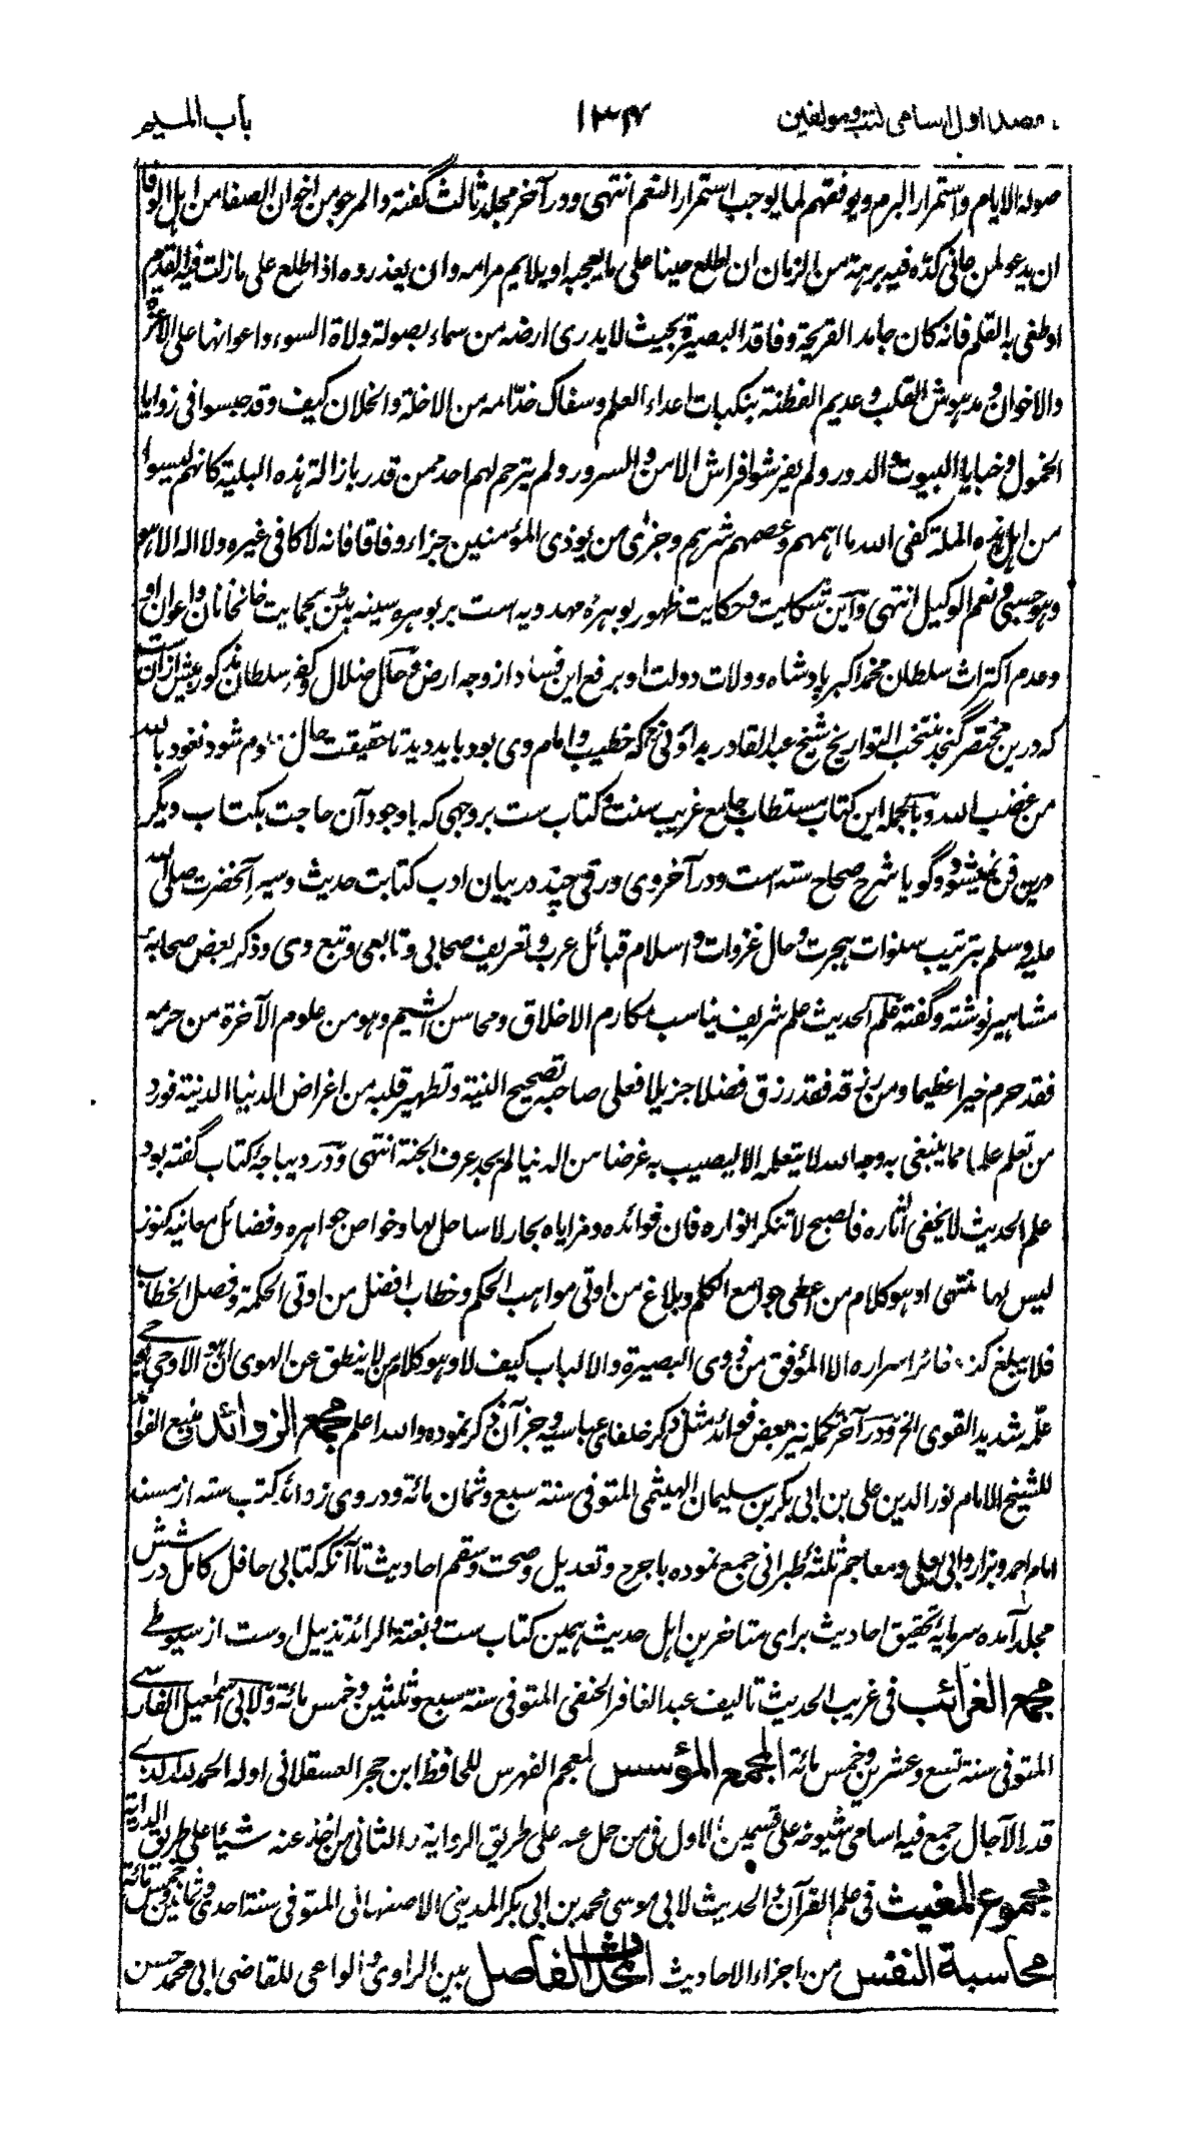 باب المیم ۱۳۷ مقصد اول اسامی کتب و مولفین
صولة الایام واستمرار البرم ویوفقهم لما یوجب استمرار النعم انتهی ودر آخر مجلد ثالث گفته والمرجو من اخوان الصفا من اهل الوفا
ان یدعو لمن جافی کده فیه برهة من الزمان ان اطلع حینا علی ما یعجبه او یلایم مرامه وان یعذروه اذا اطلع علی ما زلت فیه القدم
او طغی به القلم فانه کان جامد القریحة وفاقد البصیرة بحیث لا یدری ارضه من سماء بصولة ولاة السوء واعوانها علی الاعزة
والاخوان و مدهوش القلب و عدیم الفطنة بنکبات اعداء العلم وسفاک خدّامه من الاخلة والخلان کیف وقد حبسوا فی زوایا
الخمول وخبایا البیوت والدور ولم یفرشوا فراش الامن والسرور ولم یترحم لهم احد ممن قدر بازالة هذه البلیة کانهم لیسوا
من اهل هذه الملة کفی الله ما اهمهم وعصمهم شرهم وجزی من یؤذی المؤمنین جزاء وفاقا فانه لا کافی غیره ولا اله الا هو
وهو حسبی ونعم الوکیل انتهی واین شکایت وحکایت ظهور بوهرۂ مهدویه است بر بوهره سنیه پٹن بحمایت خانخانان واعوان او
وعدم اکتراث سلطان محمد اکبر پادشاه وولات دولت او برفع این فساد از وجه ارض وحال ضلال وکفر سلطان مذکور بیش ازان ست
که درین مختصر گنجد منتخب التواریخ شیخ عبدالقادر بداونی که خطیب وامام وی بود باید دید تا حقیقت حال معلوم شود نعوذ بالله
من غضب الله وبالجمله این کتاب مستطاب جامع غریب سنت وکتاب ست بر وجهی که باوجود آن حاجت بکتاب دیگر
درین فن نمیشود وگویا شرح صحاح سته است ودر آخر وی ورقی چند در بیان ادب کتابت حدیث وسیر آنحضرت صلی الله
علیه وسلم بترتیب سنوات هجرت وحال غزوات واسلام قبائل عرب وتعریف صحابی وتابعی وتبع وی وذکر بعض صحابهٔ
مشاهیر نوشته وگفته علم الحدیث علم شریف یناسب مکارم الاخلاق ومحاسن الشیم وهو من علوم الآخرة من حرمه
فقد حرم خیرا عظیما ومن رزقه فقد رزق فضلا جزیلا فعلی صاحبه تصحیح النیة وتطهیر قلبه من اغراض الدنیا الدنیة فورد
من تعلم علما مما ینبغی به وجه الله لا یتعلمه الا لیصیب به غرضا من الدنیا لم یجد عرف الجنة انتهی ودر دیباجۂ کتاب گفته بود
علم الحدیث لا یخفی آثاره فالصبح لا تنکر انواره فان فوائده ومزایاه بحار لا ساحل لها وخواص جواهره وفضائل معانیه کنوز
لیس لها منتهی اذ هو کلام من اعطی جوامع الکلم وبلاغ من اوتی مواهب الحکم وخطاب افضل من اوتی الحکمة وفصل الخطاب
فلا یبلغ کنه ذخائر اسراره الا المؤفق من ذوی البصیرة والالباب کیف لا وهو کلام من لا ینطق عن الهوی ان هو الا وحی یوحی
علّمه شدید القوی الخ ودر آخر تکمله نیز بعض فوائد مثل ذکر خلفای عباسیه وجز آن ذکر نموده والله اعلم مجمع الزوائد ومنبع الفوائد
للشیخ الامام نور الدین علی بن ابی بکر بن سلیمان الهیثمی المتوفی سنة سبع وثمان مائة ودر وی زوائد کتب سته از مسند
امام احمد وبزار وابی یعلی ومعاجم ثلثۂ طبرانی جمع نموده با جرح وتعدیل وصحت وسقم احادیث تا آنکه کتابی حافل کامل در شش
مجلد آمده سرمایۂ تحقیق احادیث برای متاخرین اهل حدیث همین کتاب ست وبغتة الرائد تذییل اوست از سیوطی
مجمع الغرائب فی غریب الحدیث تالیف عبد الغافر الحنفی المتوفی سنة سبع وثلثین وخمس مائة ولابی اسمعیل الفارسی
المتوفی سنة تسع وعشرین وخمس مائة المجمع المؤسس لمعجم الفهرس للحافظ ابن حجر العسقلانی اوله الحمد لله الذی
قدر الآجال جمع فیه اسامی شیوخه علی قسمین الاول فی من حمل عنه علی طریق الروایة والثانی من اخذ عنه شیئا علی طریق الدرایة
مجموع المغیث فی علم القرآن والحدیث لابی موسی محمد بن ابی بکر المدینی الاصفهانی المتوفی سنة احدی وثمانین وخمس مائة
محاسبة النفس من اجزاء الاحادیث المحدث الفاصل بین الراوی والواعی للقاضی ابی محمد حسن